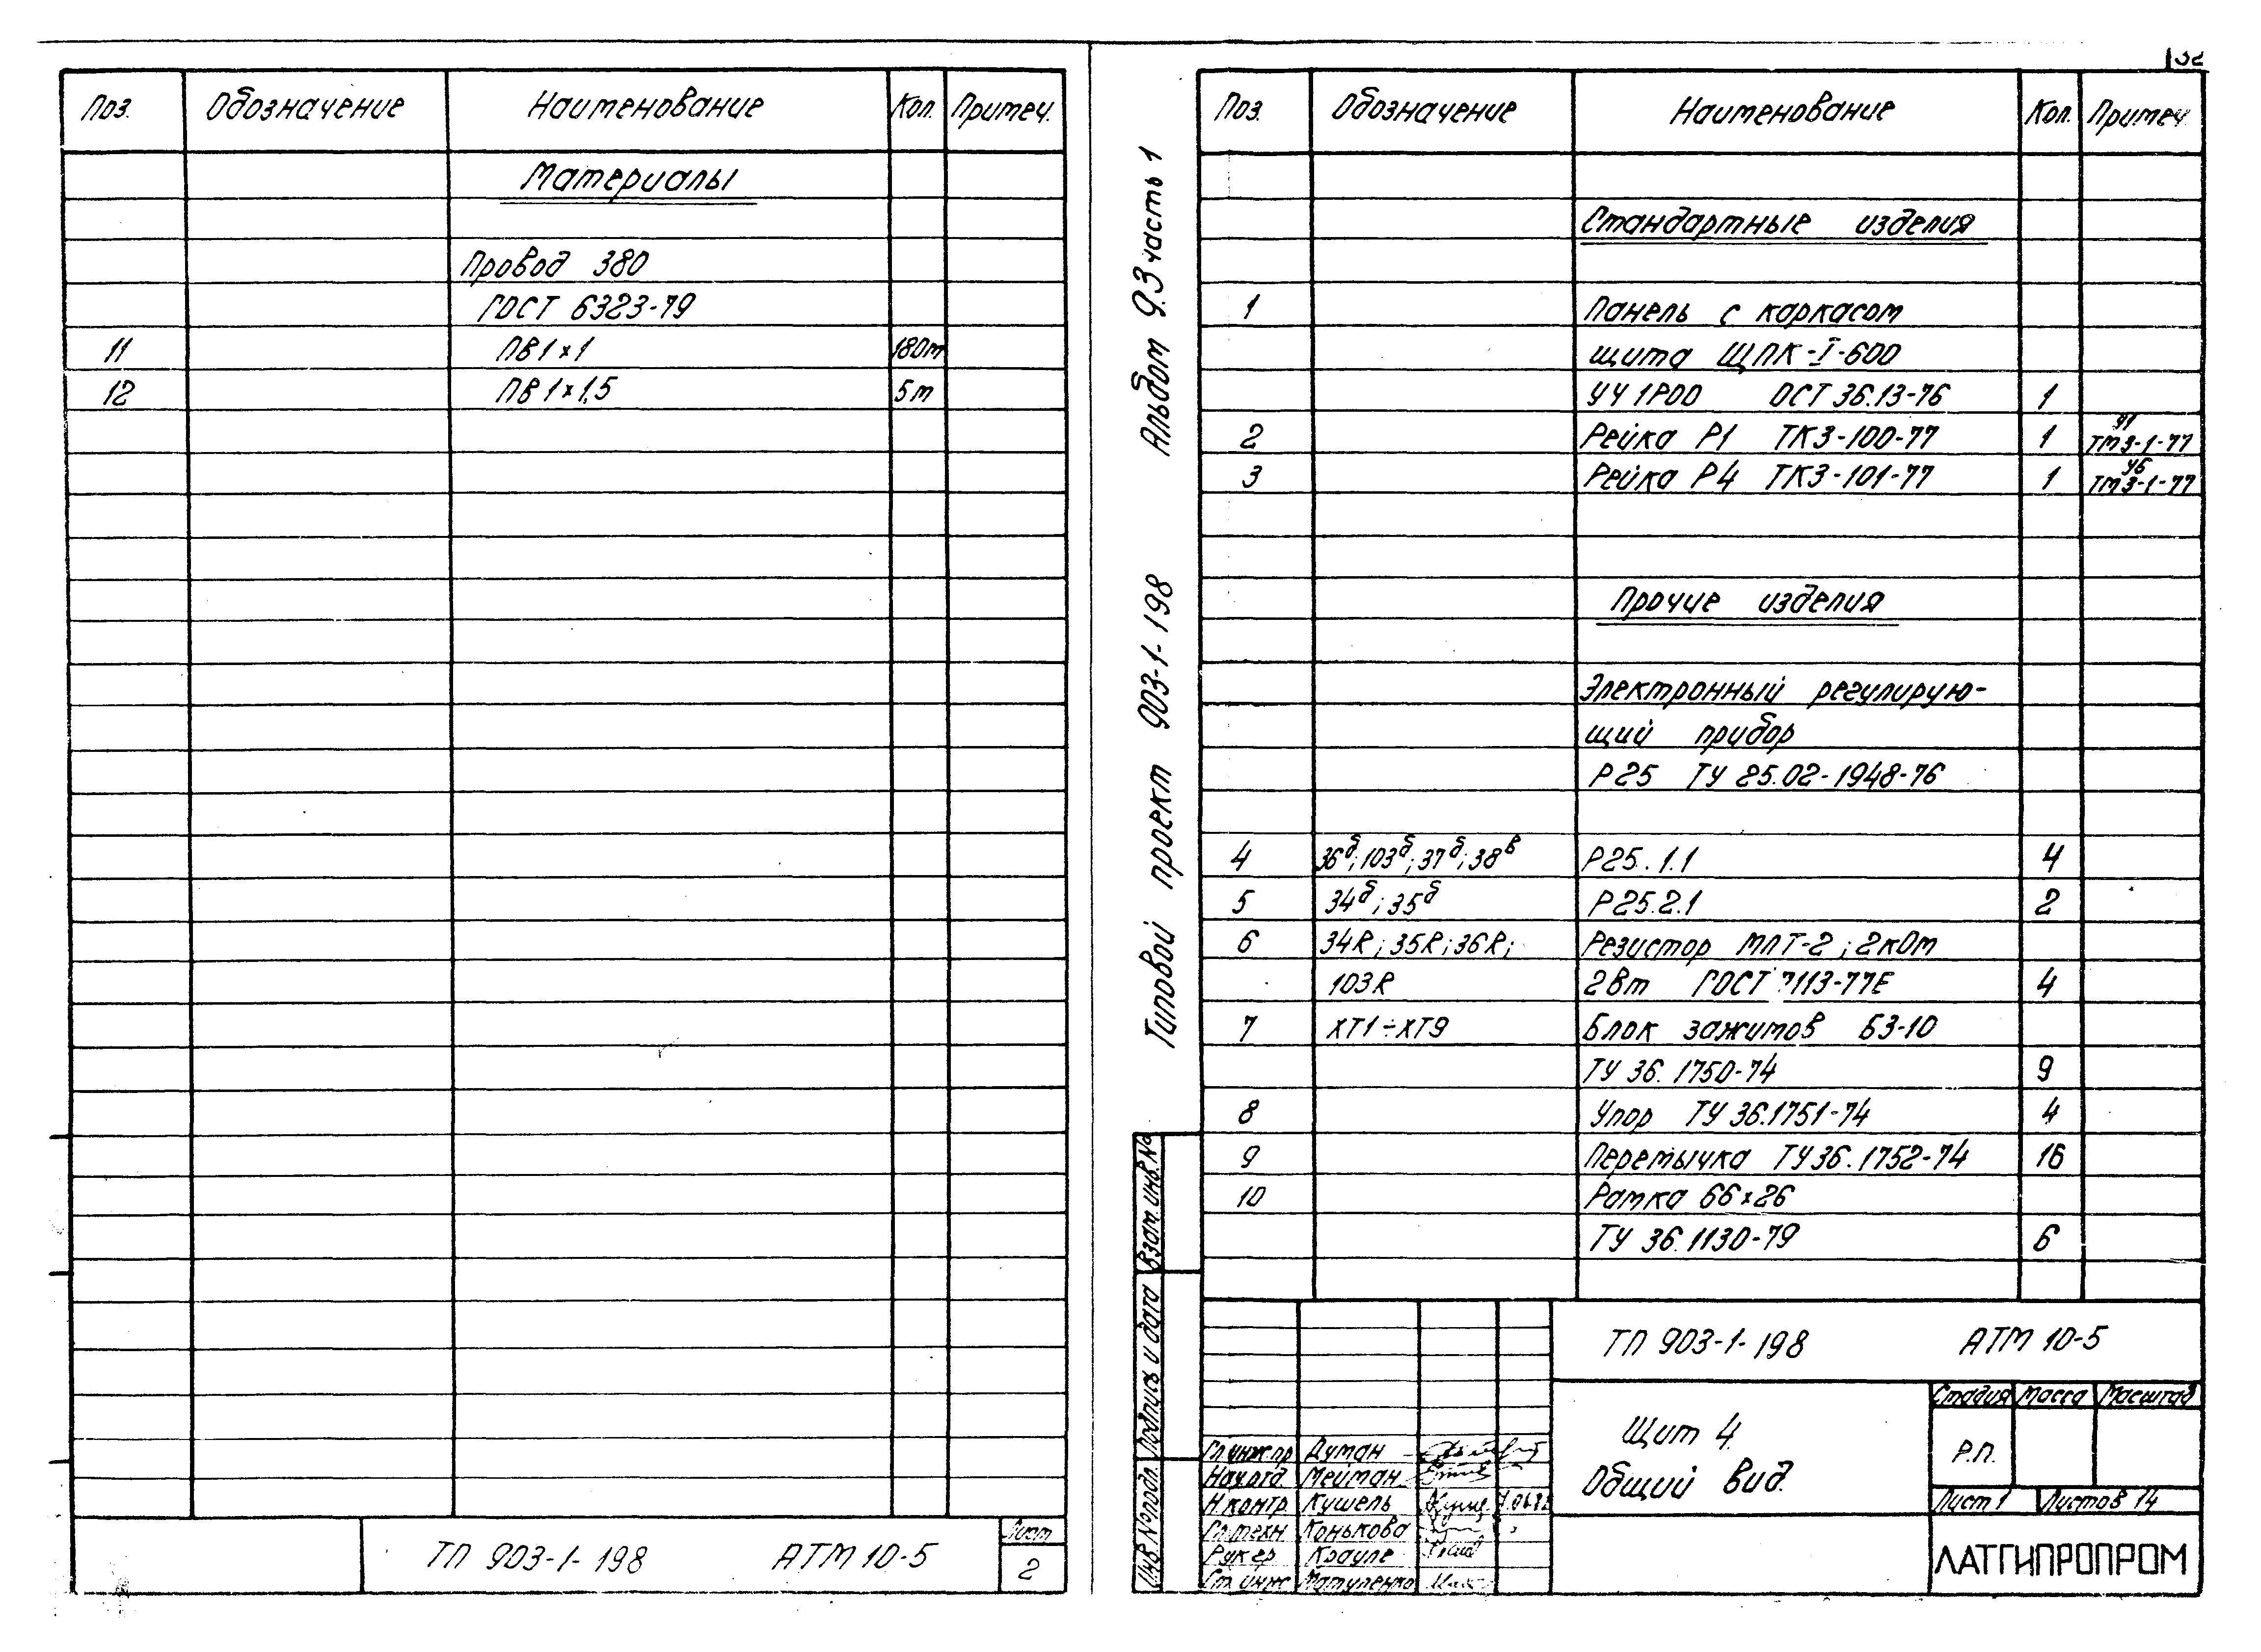 32
Поз. Обозначение Наименование Кол. Примеч.
Материалы
Провод 380
ГОСТ 6323-79
11 ПВ 1×1 180м
12 ПВ 1×1,5 5м
ТП 903-1-198 АТМ 10-5
Лист
2
Типовой проект 903-1-198 Альбом 9.3 часть 1
Взам. инв. №
Подпись и дата
Инв. № подл.
Поз. Обозначение Наименование Кол. Примеч.
Стандартные изделия
1 Панель с каркасом
щита ЩПК-I-600
УЧ 1Р00 ОСТ 36.13-76 1
2 Рейка Р1 ТК3-100-77 1 У1 ТМ3-1-77
3 Рейка Р4 ТК3-101-77 1 У6 ТМ3-1-77
Прочие изделия
Электронный регулирую-
щий прибор
Р25 ТУ 25.02-1948-76
4 36б; 103б; 37б; 38в Р25.1.1 4
5 34б; 35б Р25.2.1 2
6 34R; 35R; 36R; Резистор МЛТ-2; 2кОм
103R 2Вт ГОСТ 7113-77Е 4
7 ХТ1÷ХТ9 Блок зажимов БЗ-10
ТУ 36.1750-74 9
8 Упор ТУ 36.1751-74 4
9 Перемычка ТУ 36.1752-74 16
10 Рамка 66×26
ТУ 36.1130-79 6
ТП 903-1-198 АТМ 10-5
Щит 4.
Общий вид.
Стадия Масса Масштаб
Р.П.
Лист 1 Листов 14
ЛАТГИПРОПРОМ
Гл инж пр Думан
Нач отд. Мейтан
Н. контр. Кушель
Гл техн Конькова
Рук гр Крауле
Ст. инж Матуленко